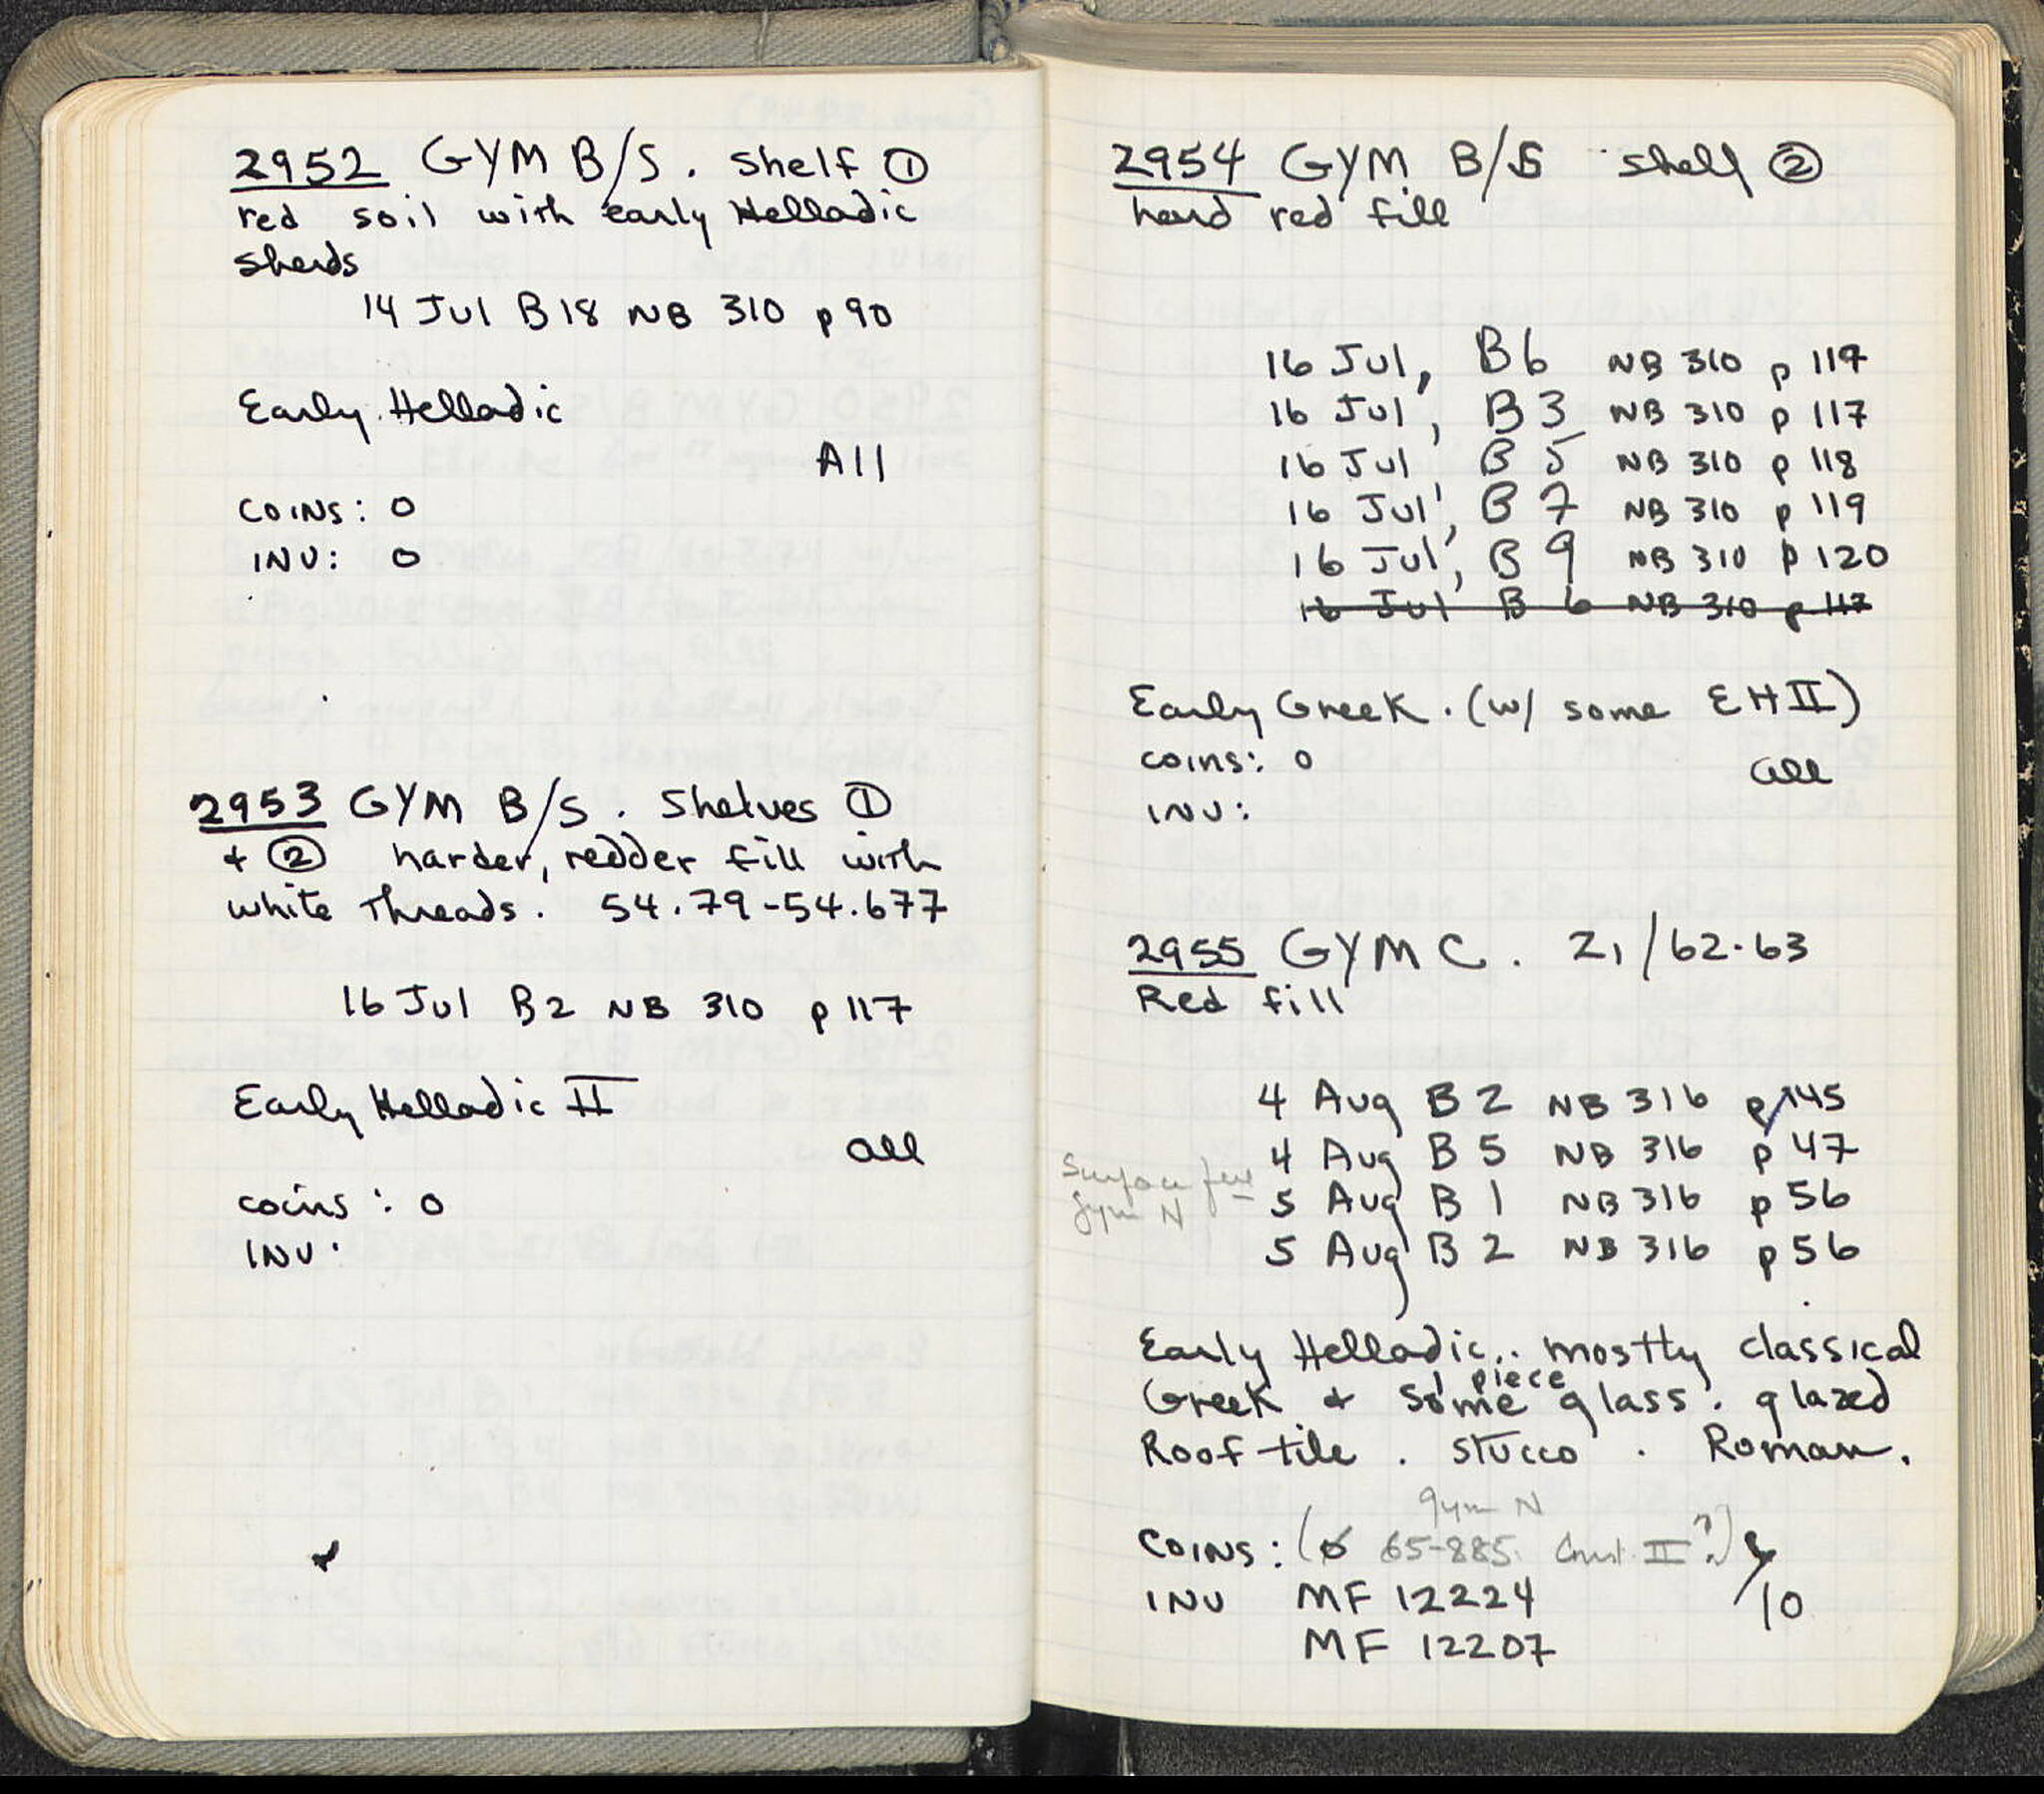 2952 GYM B/S. Shelf ①
red soil with early Helladic
sherds
14 Jul B18 NB 310 p 90
Early Helladic
All
COINS: 0
INV: 0
2953 GYM B/S. Shelves ①
+ ② harder, redder fill with
white threads. 54.79-54.677
16 Jul B2 NB 310 p 117
Early Helladic II
all
coins: 0
INV:
2954 GYM B/S Shelf ②
hard red fill
16 Jul, B6 NB 310 p 119
16 Jul, B3 NB 310 p 117
16 Jul, B5 NB 310 p 118
16 Jul, B7 NB 310 p 119
16 Jul, B9 NB 310 p 120
16 Jul B 6 NB 310 p 117
Early Greek. (w/ some EH II)
coins: 0
all
INV:
2955 GYM C. Z1/62-63
Red fill
4 Aug B2 NB 316 p 145
4 Aug B5 NB 316 p 47
Surface
5 Aug B1 NB 316 p 56
Gym N
5 Aug B2 NB 316 p 56
Early Helladic.. mostly classical
1 piece
Greek + some glass. glazed
Roof tile. Stucco. Roman.
gym N
COINS: (0 65-885. Const. II?)
INV MF 12224
10
MF 12207